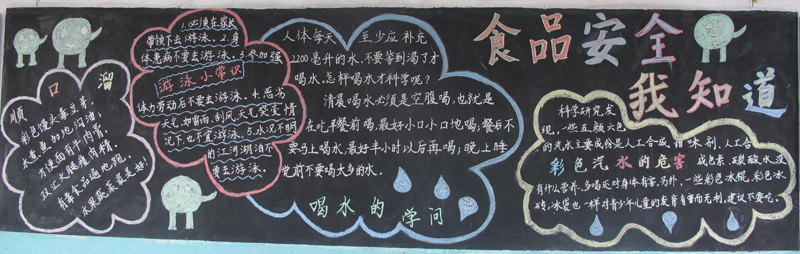 顺口溜
彩色馒头毒豆芽,
水煮鱼加地沟油,
方便面有牛肉膏,
双汇火腿瘦肉精,
有毒食品遍地现,
1.必须在家长
带领下去游泳。2.身
体患病不要去游泳。3.参加强
游泳小常识
体力劳动后不要去游泳。4.恶劣
天气如雷雨,刮风天气突变情
况下,也不宜游泳。5.水况不明
的江河湖泊不
要去游泳。
人体每天 至少应补充
2200毫升的水,不要等到渴了才
喝水,怎样喝水才科学呢?
清晨喝水必须是空腹喝,也就是
在吃早餐前喝,最好小口小口地喝;餐后不
要马上喝水,最好半小时以后再喝;晚上睡
觉前不要喝太多的水。
喝水的学问
食品安全
我知道
科学研究发
现,一些五颜六色
的汽水主要成份是人工合成甜味剂,人工合
彩色汽水的危害
成色素,碳酸水,没
有什么营养,多喝反对身体有害,另外,一些彩色冰棍,彩色冰
砖,冰袋也一样对青少年儿童的发育有害而无利,建议不要吃。